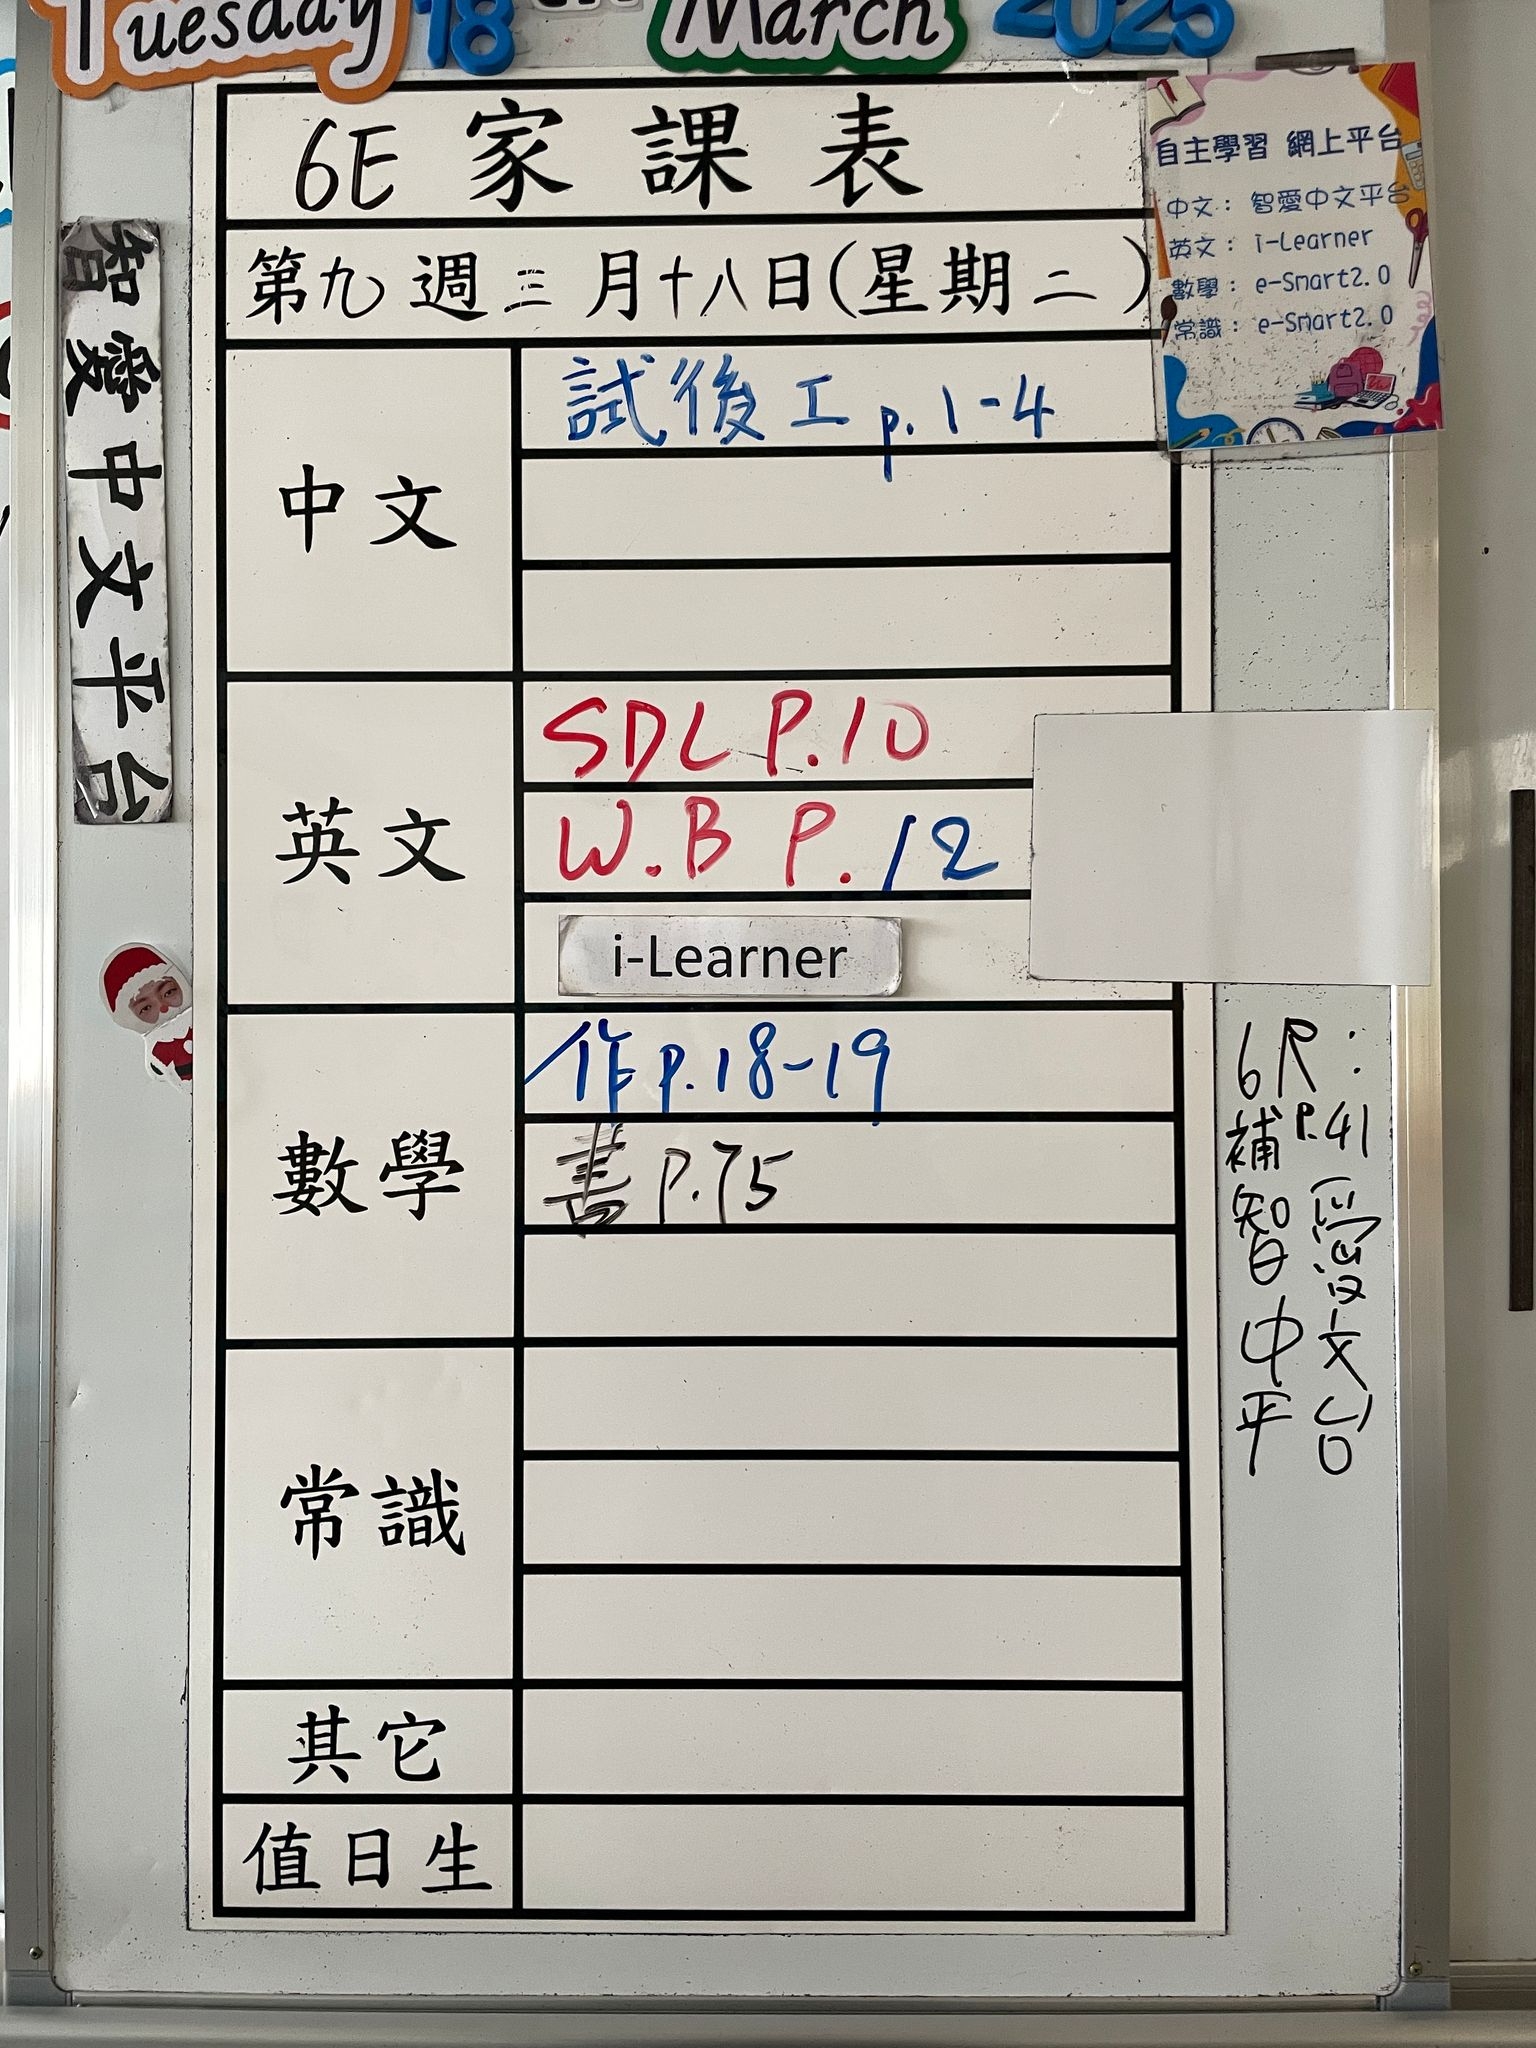 Tuesday 18 March 2025
6E 家課表
第九週三月十八日(星期二)
自主學習 網上平台
中文：智愛中文平台
英文：i-Learner
數學：e-Smart2.0
常識：e-Smart2.0
智愛中文平台
中文
試後工 p.1-4
英文
SDL P.10
W.B P.12
i-Learner
數學
作 p.18-19
書 P.75
常識
其它
值日生
6R:
補 P.41
智愛
中文
平台